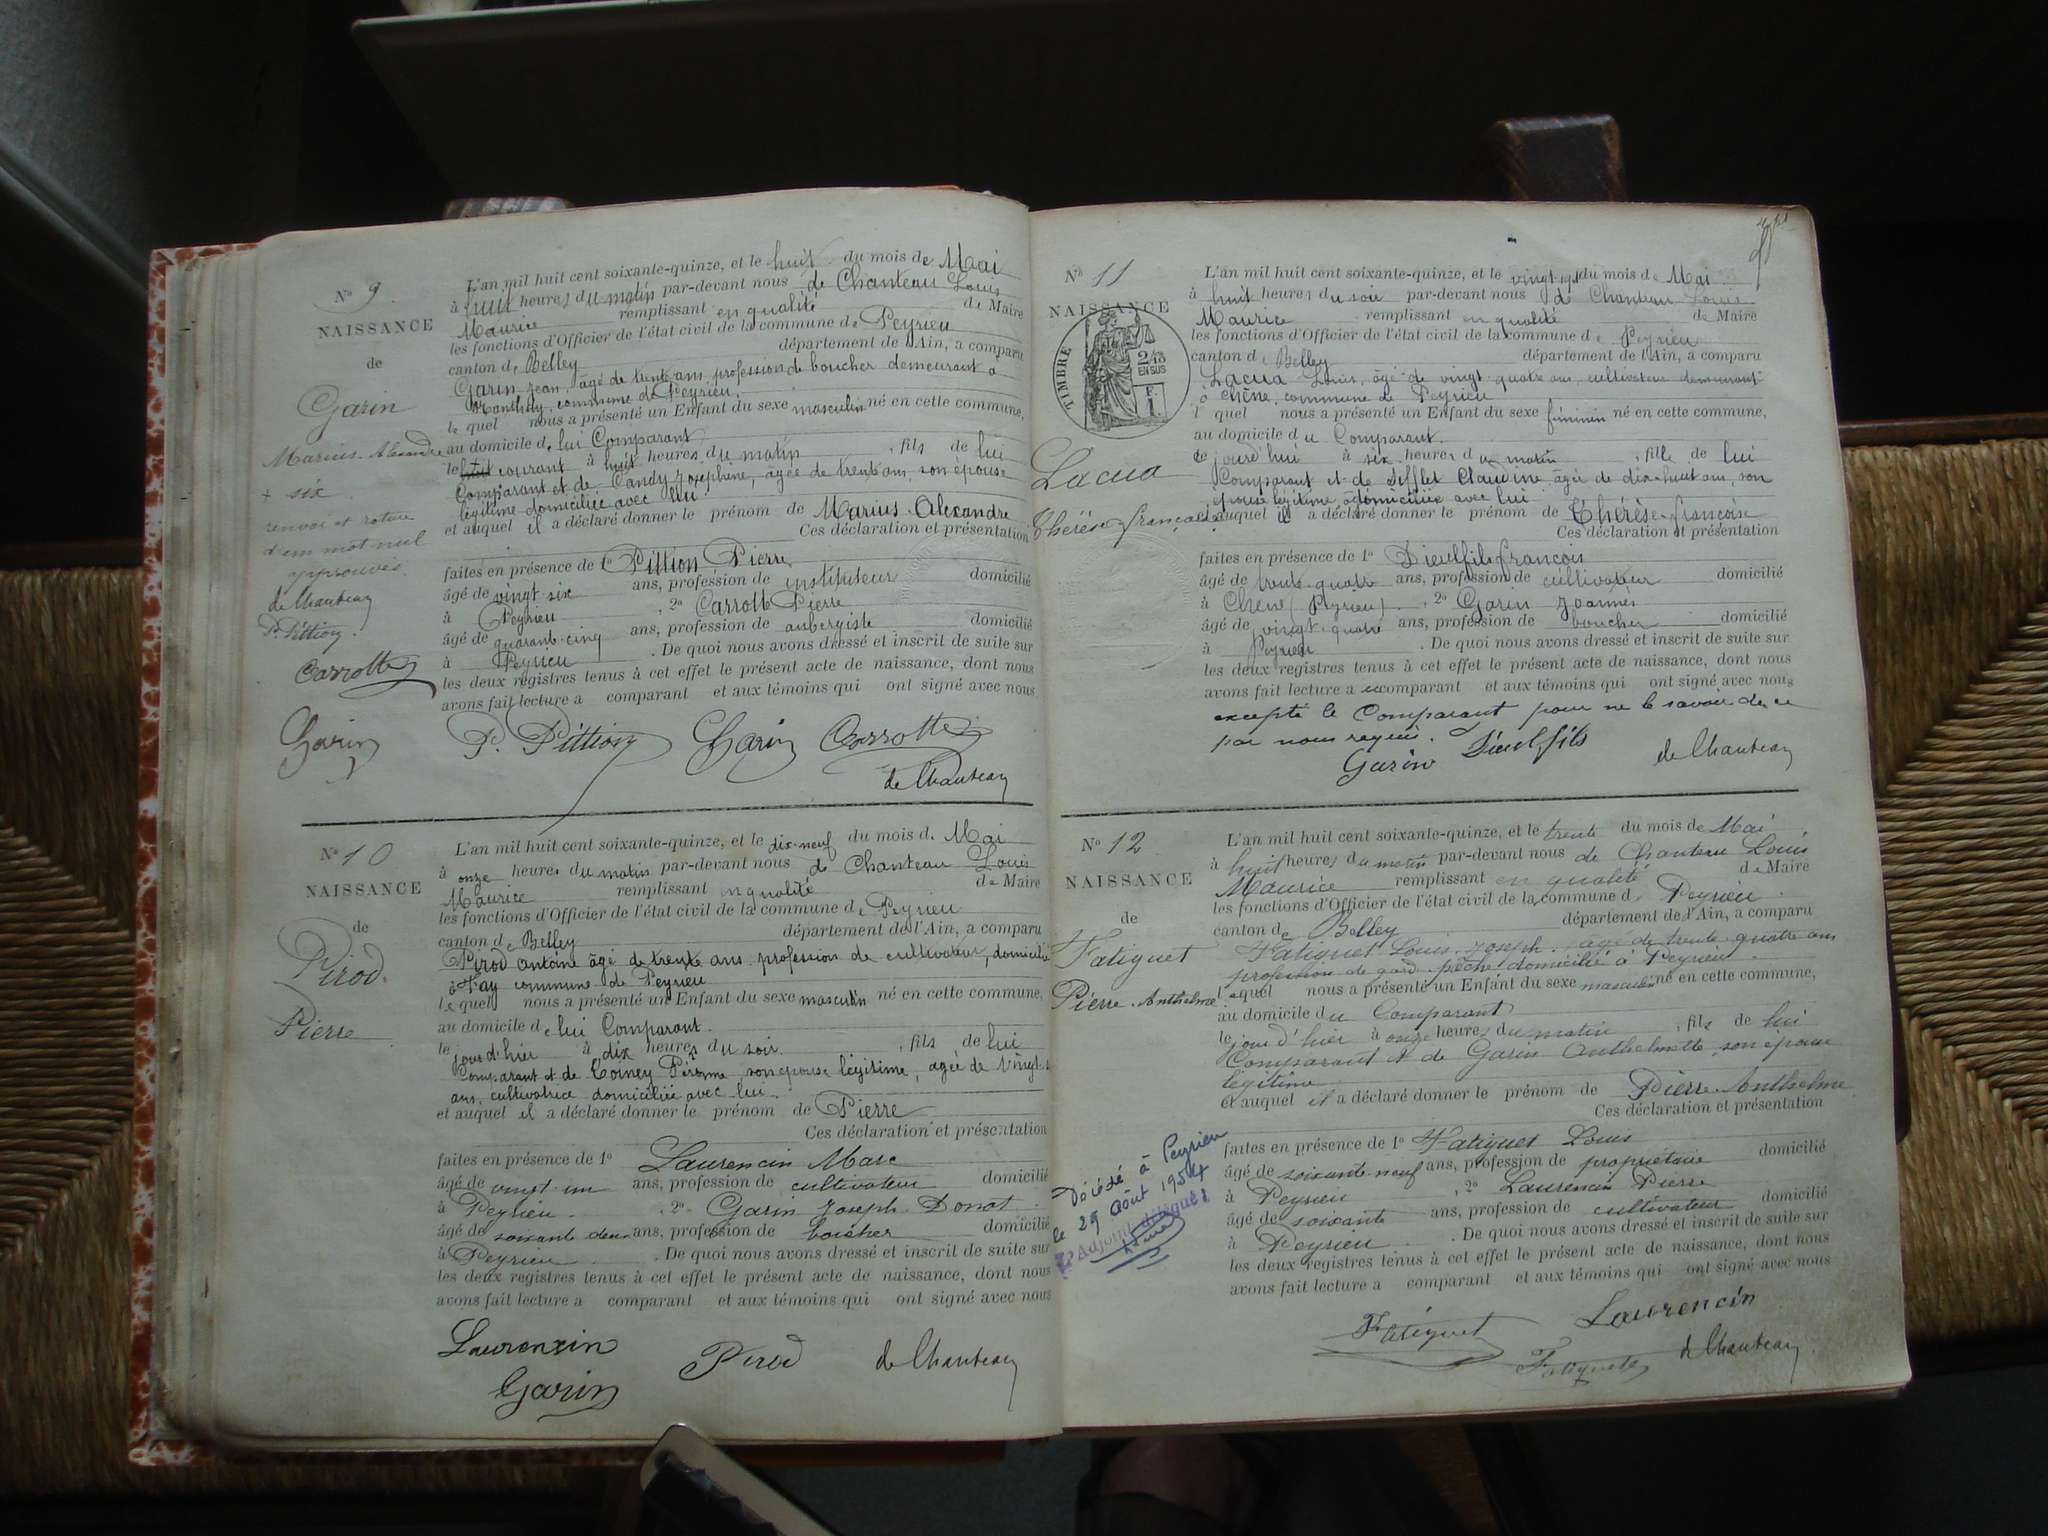 No 9.
NAISSANCE
de
Garin
Marius-Alexandre
+ six
renvoi et rature
d'un mot nul
approuvés
de Chanteau
P. Pittion
Carrotte
Garin
L'an mil huit cent soixante-quinze, et le huit du mois de Mai
à heures du matin par-devant nous de Chanteau Louis
Maurice remplissant en qualité de Maire
les fonctions d'Officier de l'état civil de la commune de Peyrieu
canton de Belley département de l'Ain, a comparu
Garin Jean, âgé de trente ans, profession de boucher demeurant à
commune de Peyrieu,
le quel nous a présenté un Enfant du sexe masculin né en cette commune,
au domicile de lui Comparant
le courant à huit heures du matin , fils de lui
Comparant et de Candy Joséphine, âgée de trente ans, son épouse
légitime domiciliée avec lui
et auquel il a déclaré donner le prénom de Marius-Alexandre
Ces déclaration et présentation
faites en présence de 1o Pittion Pierre
âgé de vingt six ans, profession de instituteur domicilié
à Peyrieu , 2o Carrotte Pierre
âgé de quarante-cinq ans, profession de aubergiste domicilié
à Peyrieu . De quoi nous avons dressé et inscrit de suite sur
les deux registres tenus à cet effet le présent acte de naissance, dont nous
avons fait lecture a comparant et aux témoins qui ont signé avec nous
P. Pittion Garin Carrotte
de Chanteau
No 10
NAISSANCE
de
Pirod.
Pierre
L'an mil huit cent soixante-quinze, et le dix-neuf du mois de Mai
à onze heures du matin par-devant nous de Chanteau Louis
Maurice remplissant en qualité de Maire
les fonctions d'Officier de l'état civil de la commune de Peyrieu
canton de Belley département de l'Ain, a comparu
Pirod Antoine âgé de trente ans profession de cultivateur, domicilié
à Fay commune de Peyrieu
le quel nous a présenté un Enfant du sexe masculin né en cette commune,
au domicile de lui Comparant.
le jour d'hier à dix heures du soir , fils de lui
Comparant et de son épouse légitime, agée de vingt
ans, cultivatrice domiciliée avec lui.
et auquel il a déclaré donner le prénom de Pierre
Ces déclaration et présentation
faites en présence de 1o Laurencin Marc
âgé de vingt-un ans, profession de cultivateur domicilié
à Peyrieu , 2o Garin Joseph Donat
âgé de soixante deux ans, profession de boucher domicilié
à Peyrieu . De quoi nous avons dressé et inscrit de suite sur
les deux registres tenus à cet effet le présent acte de naissance, dont nous
avons fait lecture a comparant et aux témoins qui ont signé avec nous
Laurencin
Garin Pirod de Chanteau
No 11
NAISSANCE
TIMBRE
2/10
EN SUS
F.
1
Lacua
Thérèse-françoise
L'an mil huit cent soixante-quinze, et le du mois de Mai
à huit heures du soir par-devant nous de Chanteau Louis
Maurice remplissant en qualité de Maire
les fonctions d'Officier de l'état civil de la commune de Peyrieu
canton de Belley département de l'Ain, a comparu
Lacua Louis, âgé de vingt-quatre ans, cultivateur demeurant
à Chêne, commune de Peyrieu
le quel nous a présenté un Enfant du sexe féminin né en cette commune,
au domicile du Comparant.
ce jourd'hui à six heures du matin , fille de lui
Comparant et de Sifflet Claudine, âgée de dix-huit ans, son
épouse légitime domiciliée avec lui
et auquel il a déclaré donner le prénom de Thérèse-françoise
Ces déclaration et présentation
faites en présence de 1o Dieulfils françois
âgé de trente-quatre ans, profession de cultivateur domicilié
à Chêne (Peyrieu) , 2o Garin Joannès
âgé de vingt-quatre ans, profession de boucher domicilié
à Peyrieu . De quoi nous avons dressé et inscrit de suite sur
les deux registres tenus à cet effet le présent acte de naissance, dont nous
avons fait lecture au comparant et aux témoins qui ont signé avec nous
excepté le Comparant pour ne le savoir de ce
par nous requis. Dieulfils
Garin de Chanteau
No 12
NAISSANCE
de
Fatiguet
Pierre-Anthelme
Décédé à Peyrieu
le 29 Août 1954
L'Adjoint délégué
L'an mil huit cent soixante-quinze, et le trente du mois de Mai
à huit heures du matin par-devant nous de Chanteau Louis
Maurice remplissant en qualité de Maire
les fonctions d'Officier de l'état civil de la commune de Peyrieu
canton de Belley département de l'Ain, a comparu
Fatiguet Louis, Joseph, âgé de trente-quatre ans
profession de gard-pêche domicilié à Peyrieu
le quel nous a présenté un Enfant du sexe masculin né en cette commune,
au domicile du Comparant
le jour d'hier à onze heures du matin , fils de lui
Comparant et de Garin Anthelmette son épouse
légitime
et auquel il a déclaré donner le prénom de Pierre-Anthelme
Ces déclaration et présentation
faites en présence de 1o Fatiguet Louis
âgé de soixante-neuf ans, profession de propriétaire domicilié
à Peyrieu , 2o Laurencin Pierre
âgé de soixante ans, profession de cultivateur domicilié
à Peyrieu . De quoi nous avons dressé et inscrit de suite sur
les deux registres tenus à cet effet le présent acte de naissance, dont nous
avons fait lecture a comparant et aux témoins qui ont signé avec nous
Fatiguet Laurencin
Fatiguet de Chanteau